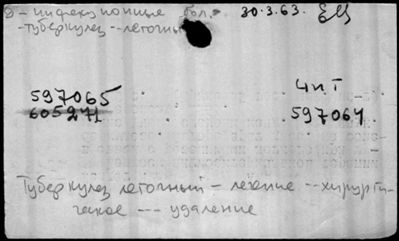 2 - инфекционные бол. 30.3.63. ЕЦ
- туберкулез - легочный
Чит
597065 597064
605271
Туберкулез легочный - лечение -- хирурги-
ческое --- удаление